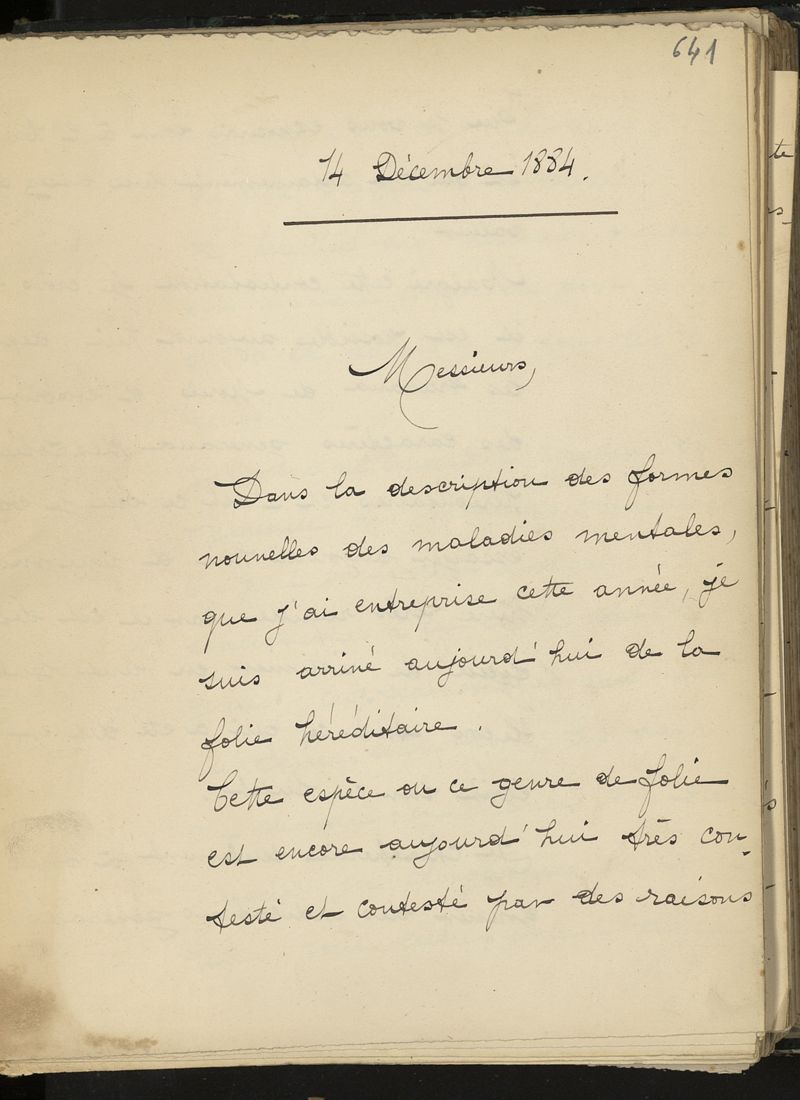 641
14 Décembre 1884.
Messieurs,
Dans la description des formes
nouvelles des maladies mentales,
que j'ai entreprise cette année, je
suis arrivé aujourd'hui de la
folie héréditaire.
Cette espèce ou ce genre de folie
est encore aujourd'hui très con-
testé et contesté par des raisons
te
s